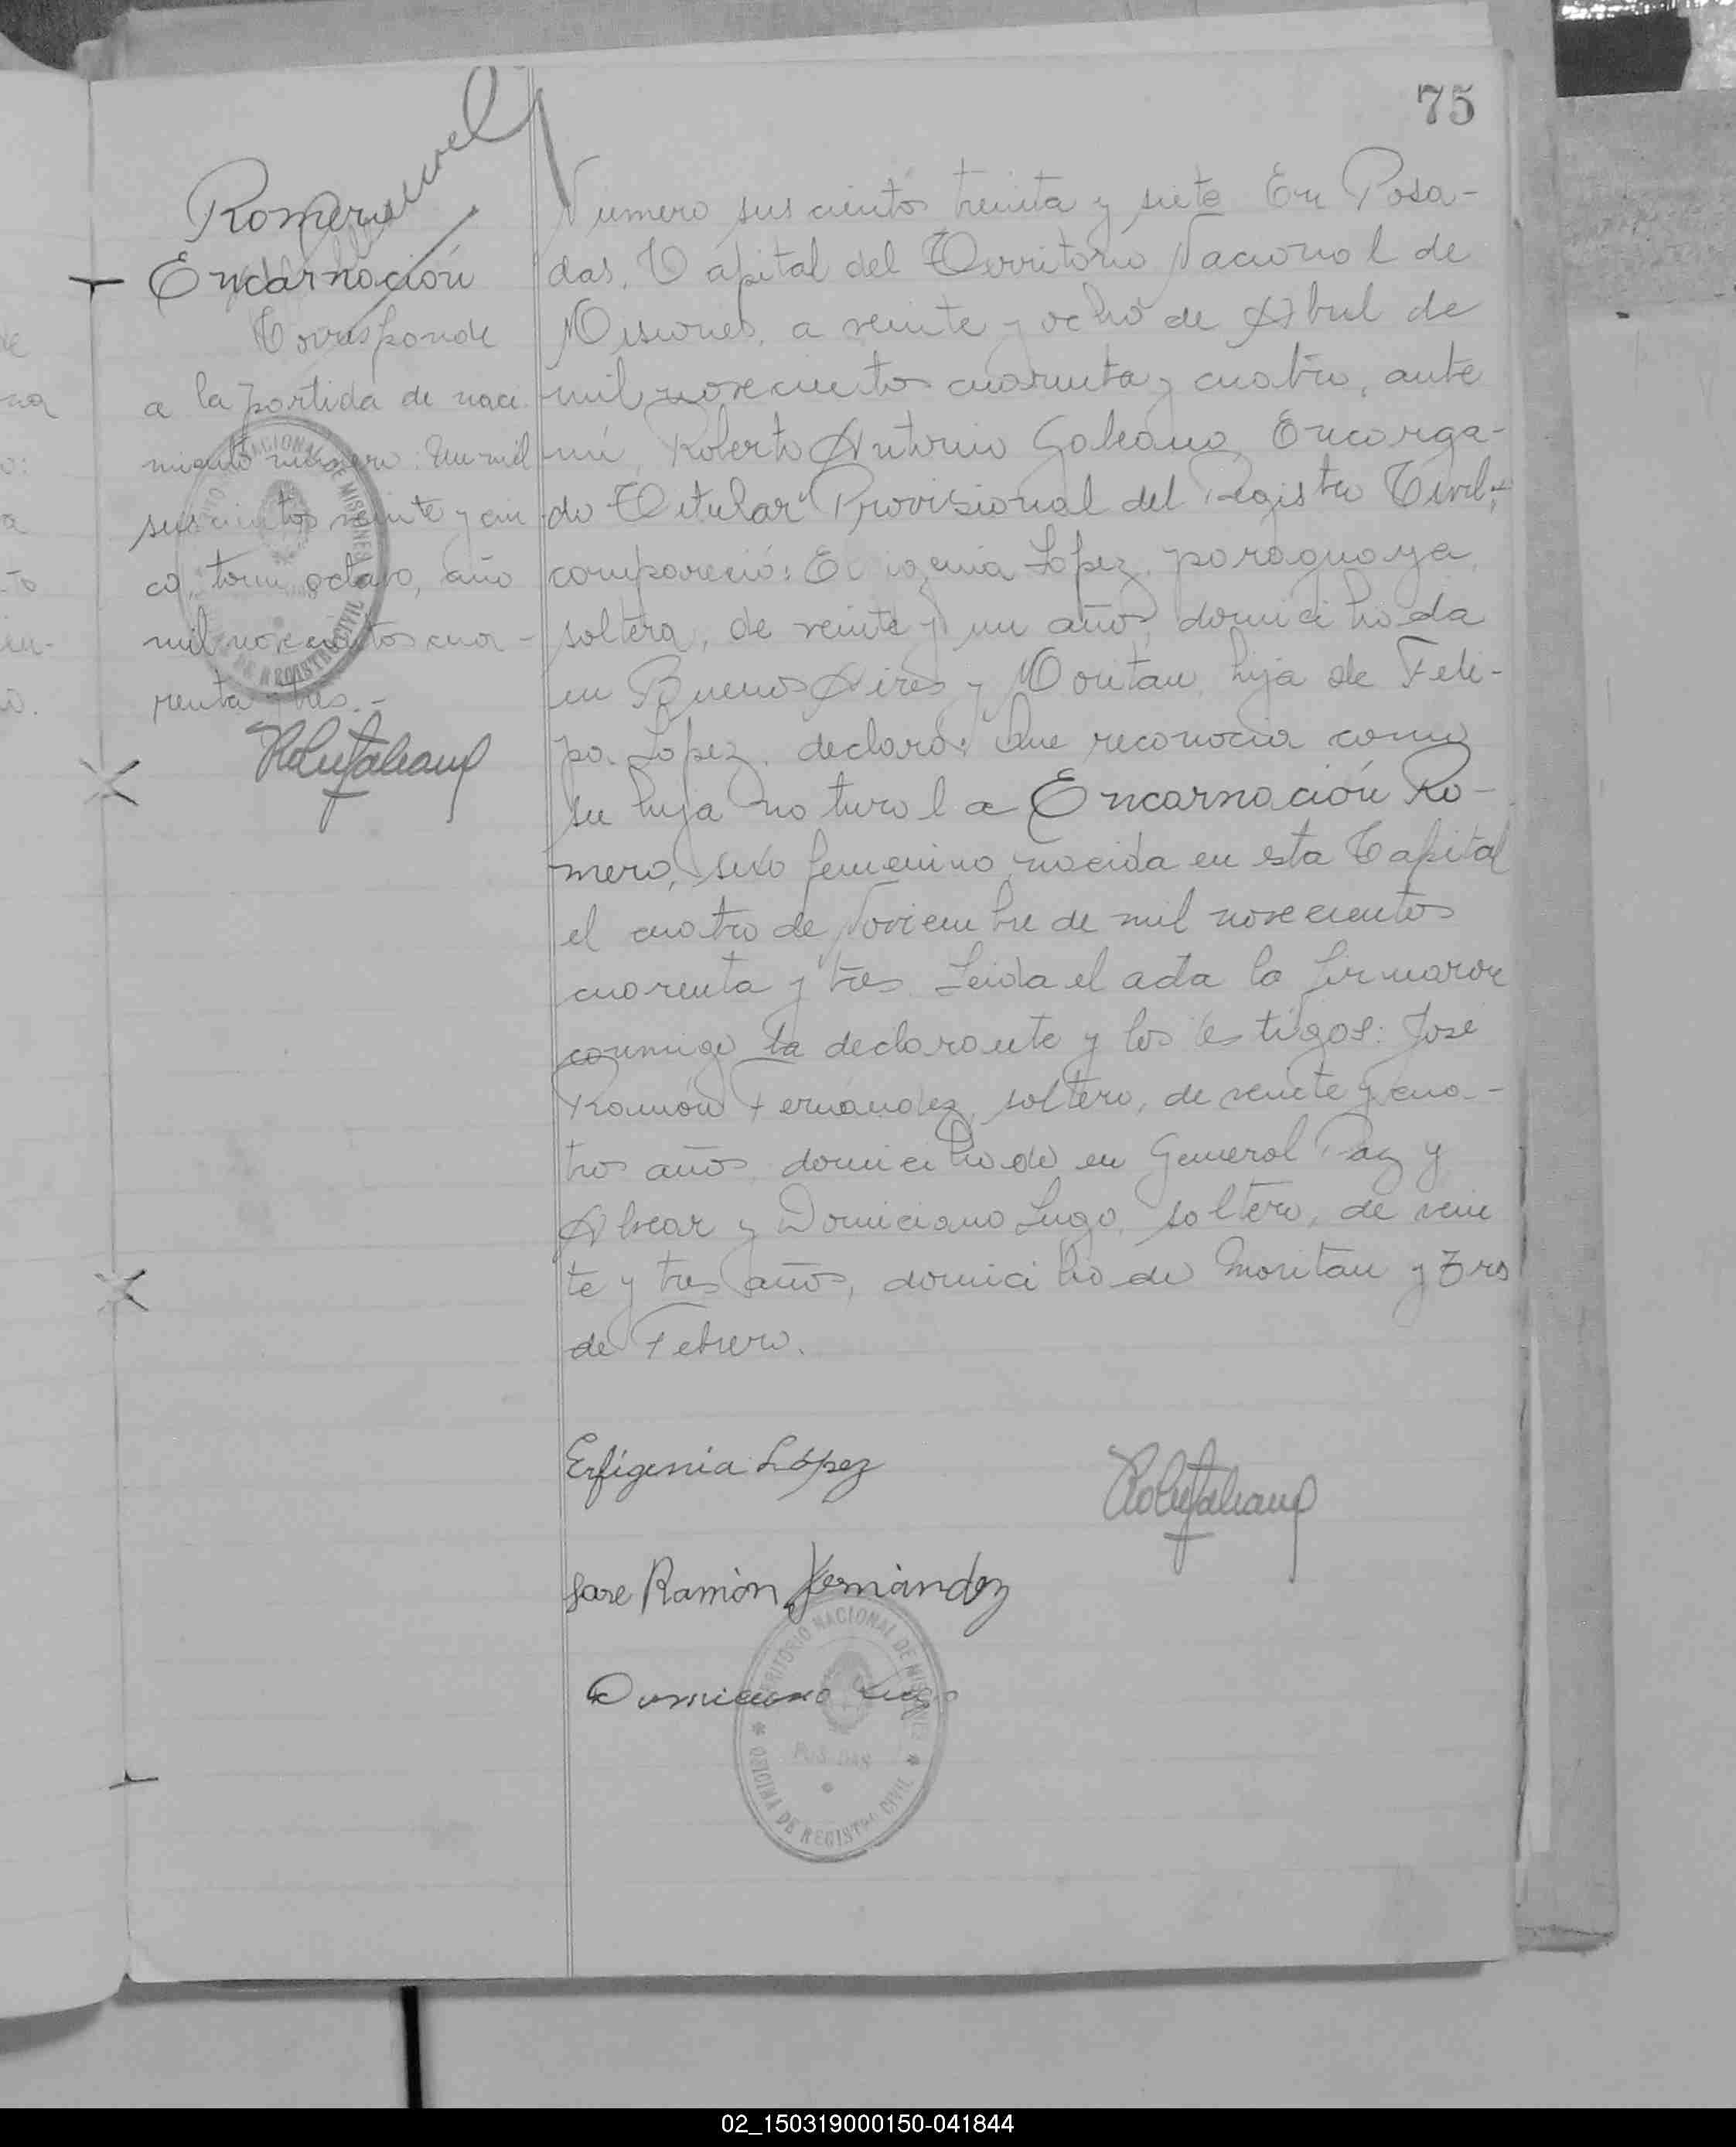 75
Romero
Encarnación
Corresponde
a la partida de naci
miento número: Un mil
seiscientos veinte y cin
co, tomo octavo, año
mil novecientos cua-
renta y tres.-
Numero seiscientos treinta y siete En Posa-
das, Capital del Territorio Nacional de
Misiones, a veinte y ocho de Abril de
mil novecientos cuarenta y cuatro, ante
mi, Roberto Antonio Galeano, Encarga-
do Titular Provisional del Registro Civil,
compareció: López, paraguaya,
soltera, de veinte y un años, domiciliada
en Buenos Aires y Moritan, hija de Feli-
pa López, declaró: Que reconocia como
su hija natural a Encarnación Ro-
mero, sexo femenino, nacida en esta Capital
el cuatro de Noviembre de mil novecientos
cuarenta y tres. Leida el acta la firmaron
conmigo la declarante y los testigos: José
Ramón Fernández, soltero, de veinte y cua-
tros años, domiciliado en General Paz y
Alvear y Domiciano Lugo, soltero, de vein
te y tres años, domiciliado Moritan y 3 rs
de Febrero.
Erfigenia López
Jose Ramón Fernández
Domiciano Lugo
TERRITORIO NACIONAL DE MISIONES
POSADAS
OFICINA DE REGISTRO CIVIL
02_150319000150-041844